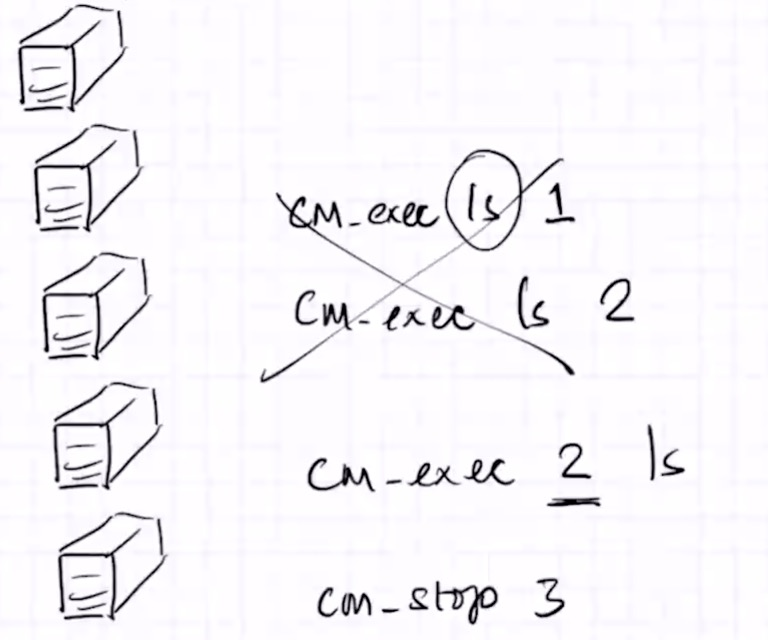 cm_exec ls 1
cm_exec ls 2
cm_exec 2 ls
cm_stop 3